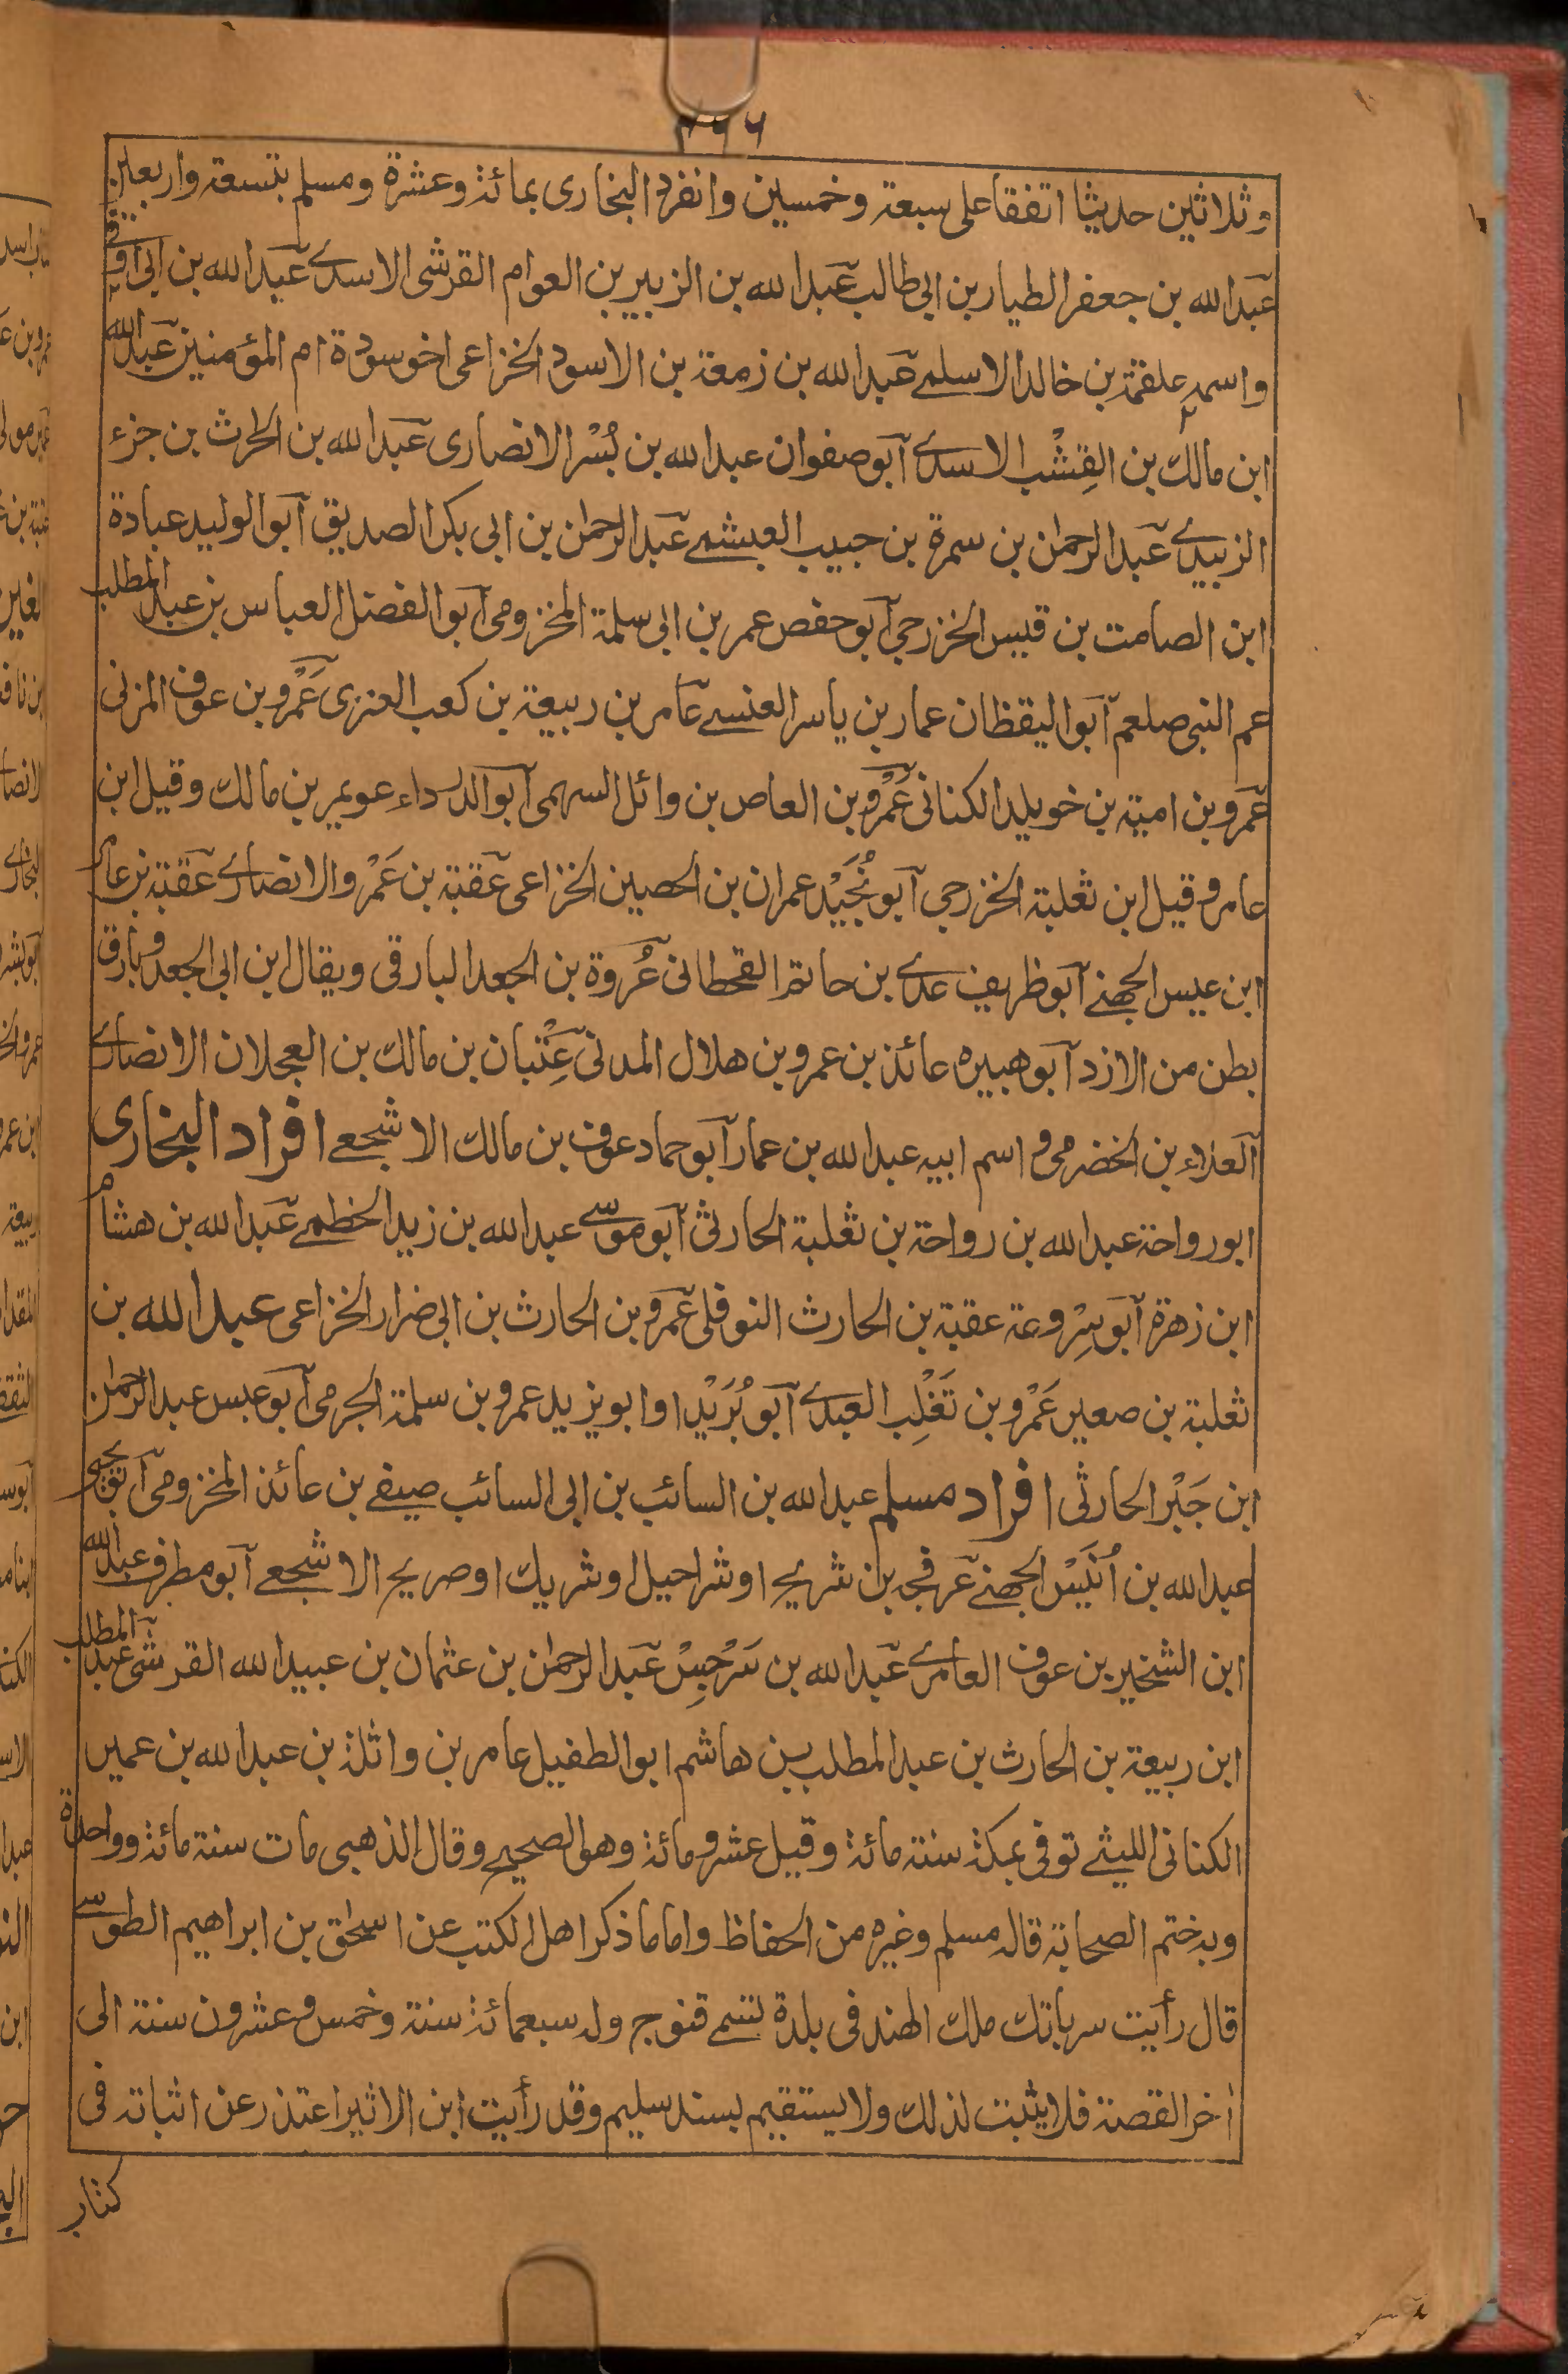 وثلاثين حديثا اتفقا على سبعة وخمسين وانفرد البخارى بمائة وعشرة ومسلم بتسعة واربعين
عبد الله بن جعفر الطيار بن ابى طالب عبد الله بن الزبير بن العوام القرشى الاسدے عبد الله بن ابى اوفى
واسمه علقمة بن خالد الاسلمے عبد الله بن زمعة بن الاسود الخزاعى اخو سودة ام المؤمنين عبد الله
ابن مالك بن القِشْب الاسدے ابو صفوان عبد الله بن بُسْر الانصارى عبد الله بن الحرث بن جزء
الزبيدے عبد الرحمٰن بن سمرة بن حبيب العبشمے عبد الرحمٰن بن ابى بكر الصديق ابو الوليد عبادة
ابن الصامت بن قيس الخزرجى ابو حفص عمر بن ابى سلمة المخزومى ابو الفضل العباس بن عبد المطلب
عم النبى صلعم ابو اليقظان عمار بن ياسر العنسے عامر بن ربيعة بن كعب العنزى عَمْرو بن عوف المزنى
عمرو بن امية بن خويلد الكنانى عَمْرو بن العاص بن وائل السهمى ابو الدرداء عويمر بن مالك وقيل ابن
عامر وقيل ابن ثعلبة الخزرجى ابو نُجَيْد عمران بن الحصين الخزاعى عقبة بن عَمْرو الانصارے عقبة بن عامر
ابن عبس الجهنے ابو ظريف عدے بن حاتم القحطانى عُروة بن الجعد البارقى ويقال ابن ابى الجعد وبارق
بطن من الازد ابو هبيره عائذ بن عمرو بن هلال المدنى عِتْبان بن مالك بن العجلان الانصارے
العلاء بن الخضرمى و اسم ابيه عبد الله بن عمار ابو حماد عوف بن مالك الاشجعے افراد البخارى
ابو رواحة عبد الله بن رواحة بن ثعلبة الحارثى ابو موسے عبد الله بن زيد الخطمے عبد الله بن هشام
ابن زهرة ابو سِروعة عقبة بن الحارث النوفلى عمرو بن الحارث بن ابى ضرار الخزاعى عبد الله بن
ثعلبة بن صعير عَمْرو بن تَغْلِب العبدے ابو بُرَيْد او ابو يزيد عمرو بن سلمة الجرمى ابو عبس عبد الرحمٰن
ابن جَبْر الحارثى افراد مسلم عبد الله بن السائب بن ابى السائب صيفے بن عائذ المخزومى ابو يحيى
عبد الله بن اُنَيْس الجهنے عرفجه بن شريح او شراحيل او شريك او صريح الاشجعے ابو مطرف عبد الله
ابن الشخير بن عوف العامرے عبد الله بن سَرْجِسْ عبد الرحمٰن بن عثمان بن عبيد الله القرشى عبد المطلب
ابن ربيعة بن الحارث بن عبد المطلب بن هاشم ابو الطفيل عامر بن واثلة بن عبد الله بن عمير
الكنانى الليثے توفى بمكة سنة مائة وقيل عشر ومائة وهو الصحيح وقال الذهبى مات سنة مائة وواحدة
وبه ختم الصحابة قاله مسلم وغيره من الحفاظ واما ما ذكر اهل الكتب عن اسحٰق بن ابراهيم الطوسے
قال رأيت سرباتك ملك الهند فى بلدة تسمے قنوج وله سبعمائة سنة وخمس وعشرون سنة الى
اٰخر القصة فلا يثبت لذلك ولا يستقيم بسند سليم وقد رأيت ابن الاثير اعتذر عن اثباته فى
كتاب